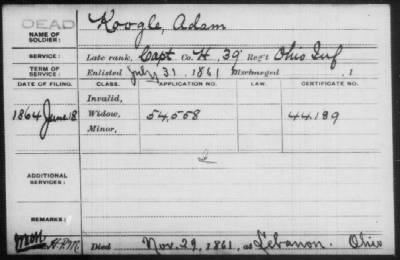 DEAD
NAME OF SOLDIER: Koogle, Adam
SERVICE: Late rank, Capt Co. H, 39 Reg't Ohio Inf
TERM OF SERVICE: Enlisted July 31, 1861 Discharged , 1
DATE OF FILING. CLASS. APPLICATION NO. LAW. CERTIFICATE NO.
Invalid,
1864 June 18 Widow, 54,558 44.189
Minor,
ADDITIONAL SERVICES:
REMARKS:
Died Nov. 29, 1861, at Lebanon. Ohio